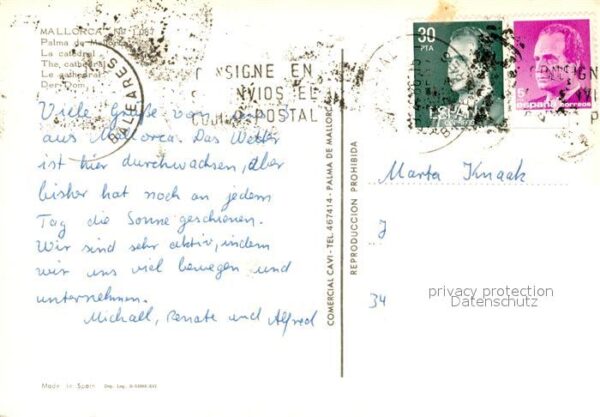 MALLORCA
Palma de
La catedral
The cathedral
Le
Der Dom
BALEARES
CONSIGNE EN
ENVIOS EL
POSTAL
Viele Grüße von
aus Mallorca. Das Wetter
ist hier durchwachsen, aber
bisher hat noch an jedem
Tag die Sonne geschienen.
Wir sind sehr aktiv, indem
wir uns viel bewegen und
unternehmen.
Michael, Renate und Alfred
Made in Spain
COMERCIAL CAVI - TEL. 467414 - PALMA DE MALLORCA
REPRODUCCION PROHIBIDA
30
PTA
ESPAÑA
5
españa correos
CONSIGN
Marta Knaak
J
34
privacy protection
Datenschutz